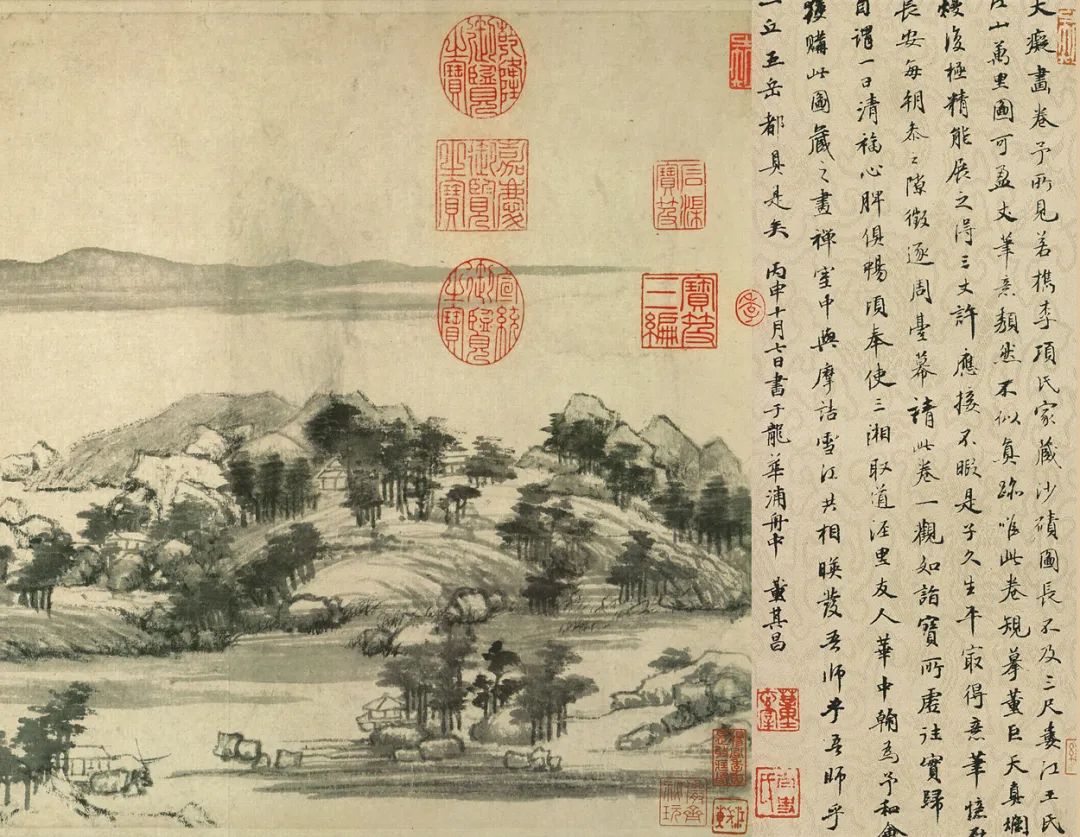 大癡畫卷予所見若檇李項氏家藏沙磧圖長不及三尺婁江王氏
江山萬里圖可盈丈筆意頹然不似真跡唯此卷規摹董巨天真爛
熳復極精能展之得三丈許應接不暇是子久生平最得意筆憶
長安每朝參之隙徵逐周臺幕請此卷一觀如詣寶所虛往實歸
自謂一日清福心脾俱暢頃奉使三湘取道涇里友人華中翰為予和會
獲購此圖藏之畫禪室中與摩詰雪江共相暎發吾師乎吾師乎
一丘五岳都具是矣 丙申十月七日書于龍華浦舟中 董其昌
石渠寶笈
寶笈三編
乾隆御覽之寶
嘉慶御覽之寶
宣統御覽之寶